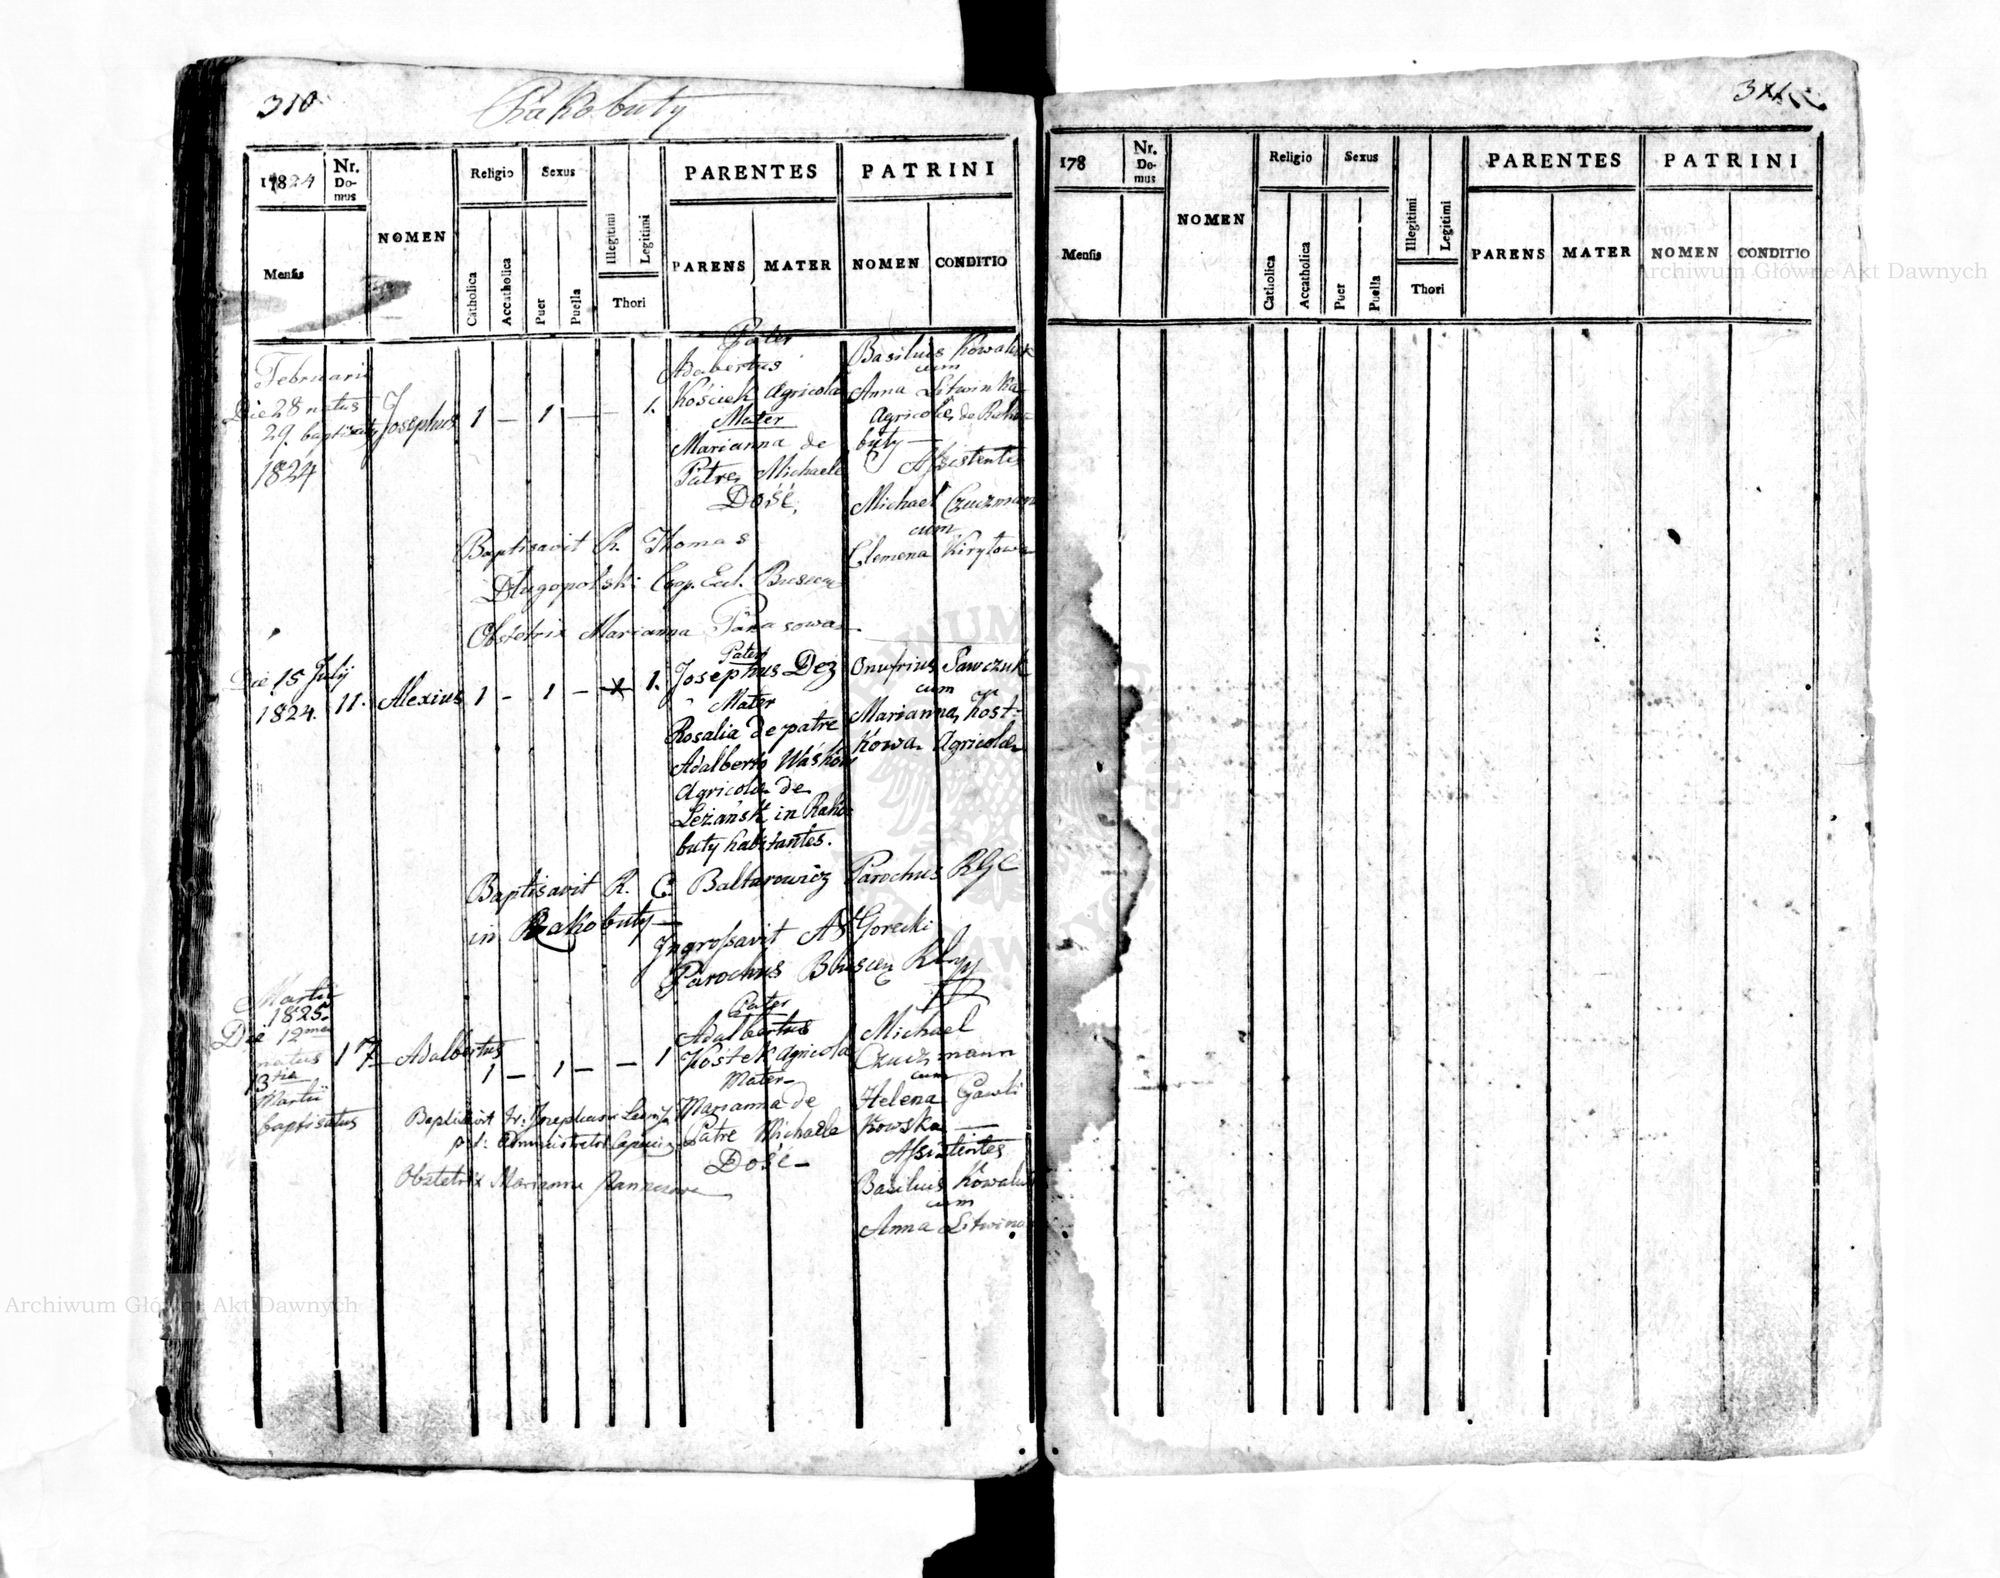 310
Rakobuty
1824
Nr. Domus
NOMEN
Religio
Sexus
PARENTES
PATRINI
Mensis
Catholica
Accatholica
Puer
Puella
Illegitimi
Legitimi
Thori
PARENS
MATER
NOMEN
CONDITIO
Februarii
Die 28 natus
29. baptisatus
1824
Josephus
1 — 1 — — 1.
Pater
Adabertus
Kościek Agricola
Mater
Marianna de
Patre Michaele
Dość.
Basilius Kowaluk
cum
Anna Litwinka
Agricolæ de Rako-
buty —
Assistentes
Michael Czuczmann
cum
Clemena Kirylowa
Baptisavit R. Thomas
Długopolski Coop. Eccl. Buscens
Obstetrix Marianna Panasowa
Die 15 July
1824.
11.
Alexius
1 — 1 — 1.
Pater
Josephus Dez
Mater
Rosalia de patre
Adalberto Waśkow
Agricola de
Leżańsk in Rako-
buty habitantes.
Onufrius Pawczuk
cum
Marianna Kost-
kowa Agricolæ
Baptisavit R. C. Baltarowicz Parochus RGC
in Rakobuty —
Ingrossavit Gorecki
Parochus Buscen
Martii
1825.
Die 12ma
natus
13tia
Martii
baptisatus
17
Adalbertus
1 — 1 — — 1
Pater
Adalbertus
Kośtek Agricola
Mater
Marianna de
Patre Michaele
Dość —
Michael
Czuczmann
cum
Helena Gawli
kowska —
Assistentes
Basilius Kowaluk
cum
Anna Litwina
Baptisavit Fr: Josephus
Administrator
Obstetrix Marianna
178
Nr. Domus
NOMEN
Religio
Sexus
PARENTES
PATRINI
Mensis
Catholica
Accatholica
Puer
Puella
Illegitimi
Legitimi
Thori
PARENS
MATER
NOMEN
CONDITIO
Archiwum Główne Akt Dawnych
Archiwum Główne Akt Dawnych